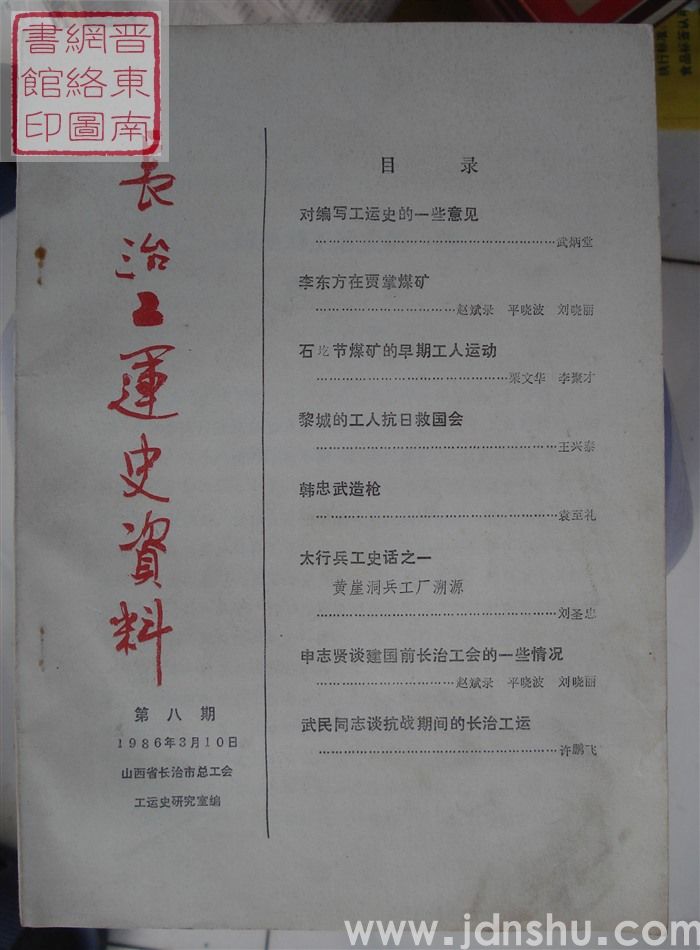 晋東南
網絡圖
書館印
长治工運史資料
第八期
1986年3月10日
山西省长治市总工会
工运史研究室编
目录
对编写工运史的一些意见
武炳堂
李东方在贾掌煤矿
赵斌录 平晓波 刘晓丽
石圪节煤矿的早期工人运动
栗文华 李聚才
黎城的工人抗日救国会
王兴泰
韩忠武造枪
袁至礼
太行兵工史话之一
黄崖洞兵工厂溯源
刘圣忠
申志贤谈建国前长治工会的一些情况
赵斌录 平晓波 刘晓丽
武民同志谈抗战期间的长治工运
许鹏飞
www.jdnshu.com